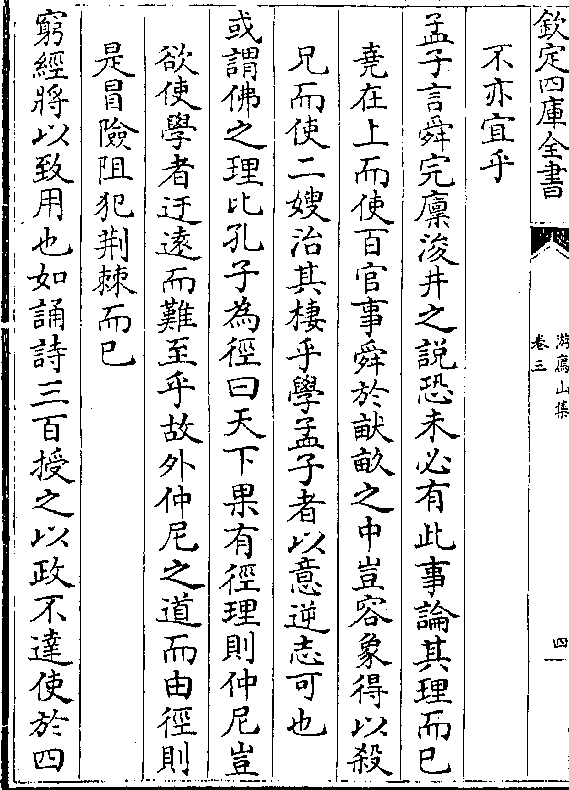 欽定四庫全書
游廌山集
卷三
四
不亦宜乎
孟子言舜完廩浚井之說恐未必有此事論其理而已
堯在上而使百官事舜於畎畝之中豈容象得以殺
兄而使二嫂治其棲乎學孟子者以意逆志可也
或謂佛之理比孔子為徑曰天下果有徑理則仲尼豈
欲使學者迂遠而難至乎故外仲尼之道而由徑則
是冒險阻犯荆棘而已
窮經將以致用也如誦詩三百授之以政不達使於四